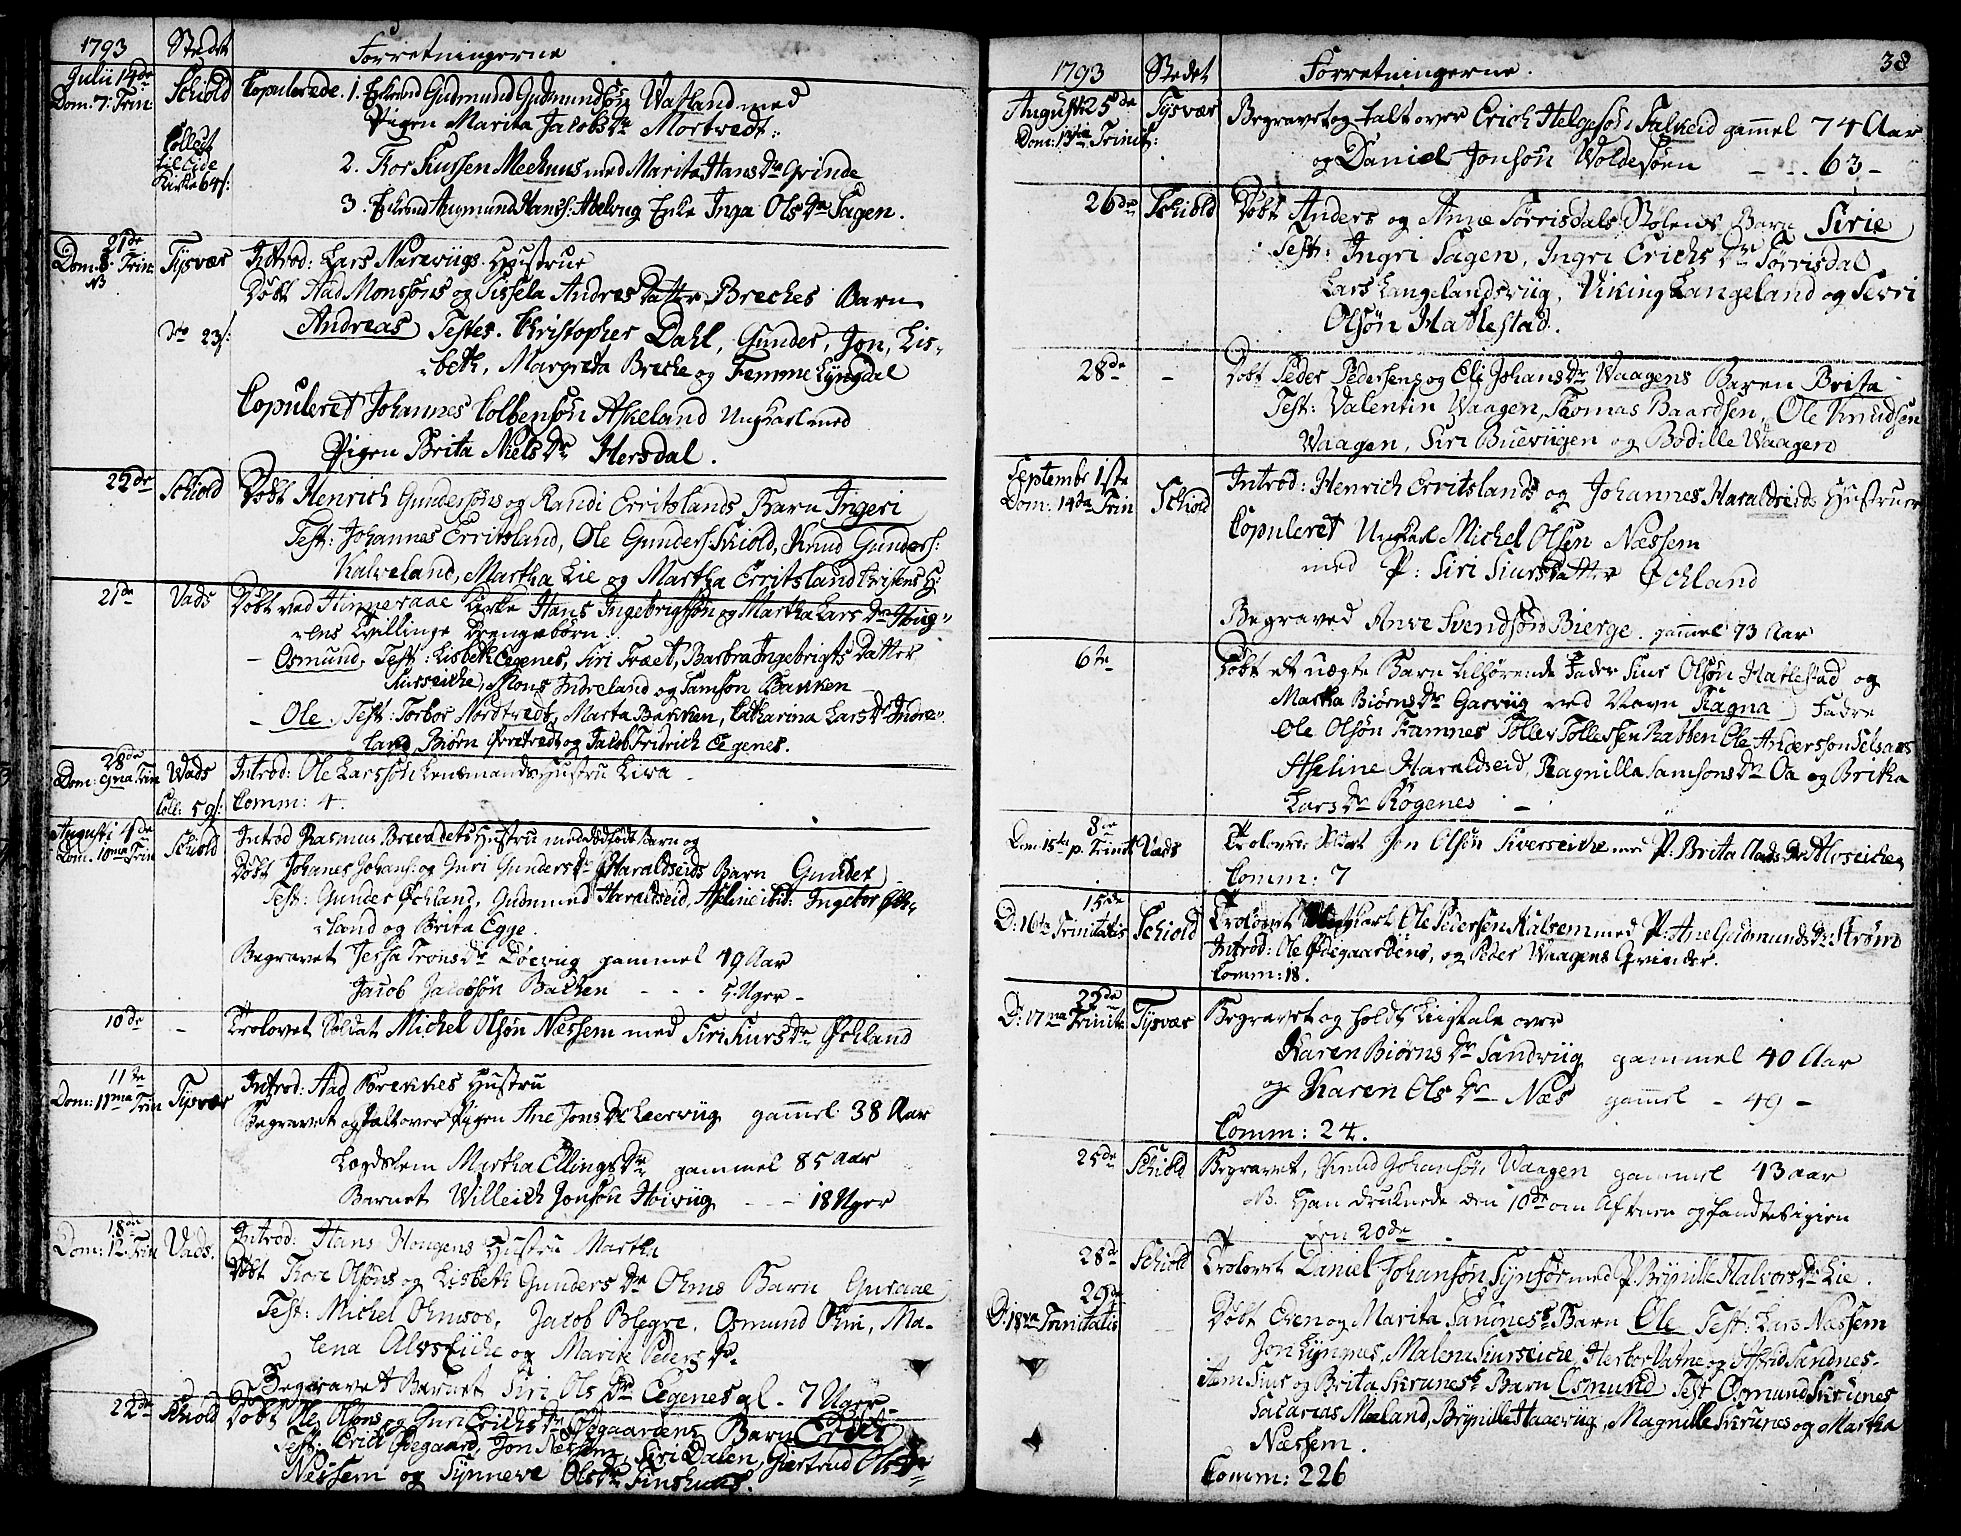 1793 Stedet Forretningerne
Julii 14de Schiold Copulerede. 1. Enkemand Gudmund Gudmundsøn Vatland med
Dom: 7. Trin Pigen Marita Jacobs Dr Mortvedt.
Collect til Eide Kirke 64 s:
2. Tor Knutsen Meehuus med Marita Hans Dr Grinde
3. Enkemand Augmund Hans: Aelvug Enke Inga Ols Dr Sagen.
21de
Dom: 8. Trin Tysvær Introd: Lars Narevugs Hustrue
N3 Døbt Aad Monssøns og Sissela Andres Datter Breches Barn
Do 23 s: Andreas Testes. Christopher Dahl, Gunder, Jon, Lis-
beth, Margreta Breche og Femme Lyngdal
Copuleret Johannes Colbensøn Askeland Ungkarl med
Pigen Brita Niels Dr Hersdal.
22de Schiold Døbt Henrich Gundersøns og Randi Erritslands Barn Ingeri
Test: Johannes Erritsland, Ole Gunders: Skiold, Knud Gunders:
Kalveland, Martha Lie og Martha Erritsland
21de Vads Døbt ved Hinneraae Kirke Hans Ingebrigtsøn og Martha Lars Dr Houg-
ens Tvillinge Drengebørn.
– Osmund, Test: Lisbeth Eegenes, Siri Træet, Barbra Ingebrigts Datter
Siurseiche, Mons Indreland og Samson Bakken
– Ole. Test: Torbor Nordtredt, Marta Bakken, Catharina Lars Dr Indre-
land, Biørn Øvretredt og Jacob Fridrich Eegenes.
28de
Dom: 9na Trin Vads Introd: Ole Larssøn Lensmands Hustru Liva
Coll: 59 s: Comm: 4.
Augusti 4de
Dom. 10ma Trin Schiold Introd Rasmus Brevedets Hustru med dødfødt Barn og
Døbt Johanes Johans: og Guri Gunders Dr Haraldseids Barn Gunder
Test: Gunder Øchland, Gudmund Haraldseid, Aseline ibid: Ingebor Øch-
land og Brita Egge.
Begravet Tessa Trons Dr Døevug gammel 49 Aar
Jacob Jacobsøn Bachen - - - 5 Uger -
10de – Trolovet Soldat Michel Olsøn Næssem med Siri Siurs Dr Øchland
11te
Dom: 11ma Trin Tysvær Introd: Aad Brekkes Hustru
Begravet og Talt over Pigen Ane Jons Dr Leervug gammel 38 Aar
Lægdslem Martha Ellings Dr gammel 85 Aar
Barnet Willeich Jonsøn Høivug - - - 18 Uger
18de
Dom: 12. Trin Vads. Introd: Hans Hougens Hustru Martha
Døbt Tore Olsøns og Lisbeth Gunders Dr Olms Barn Guraae
Test: Michel Olmsoe, Jacob Blegre. Osmund Olm, Ma-
lena Alvseiche og Marite Peders Dr.
Begravet Barnet Siri Ols Dr Eegenes gl. 7 Uger
22de Schiold Døbt Ole Olsøns og Guri Erichs Dr Ødegaardens Barn Erick
Test: Erick Ødegaard, Jon Næssem, Siri Dalen, Giertrud Ols Dr
Næssem og Synneve Ols Dr Sinshuus.
1793 Stedet Forretningerne. 38
August 25de Tysvær Begravet og talt over Erich Helgesøn Falkeid gammel 74 Aar
Dom: 13tia Trinit: og Daniel Jonsøn Woldesøen - - - 63 -
26de Schiold Døbt Anders og Anne Tørrisdals Stølens Barn Sirie
Test: Ingri Sagen, Ingri Erichs Dr Tørrisdal
Lars Langelandsvug, Viking Langeland og Sevri
Olsøn Hatlestad.
28de – Døbt Peder Pedersens og Eli Johans Dr Vaagens Baren Brita
Test: Valentin Vaagen, Thomas Baardsen, Ole Knudsen
Vaagen, Siri Buevugen og Bodille Vaagen
Septembr 1ste
Dom: 14ta Trin Schiold Introd: Henrich Erritslands og Johannes Haraldseids Hustruer
Copuleret Ungkarl Michel Olsen Næssem
med P: Siri Siurs Datter Øchland
Begraved Anve Svendsøn Bierge. gammel 73 Aar
6te Døbt et uægte Barn tilhørende Fader Siur Olsøn Hatlestad og
Martha Biørns Dr Garvug ved Navn Ragna Fadre
Ole Olsøn Framnes Toller Tollessen Rabben Ole Anderssøn Selsaas
Aseline Haraldseid, Ragnilla Samsons Dr Oa og Britha
Lars Dr Røgenes –
8de
Dom 15ta p. Trinit Vads Trolovet Soldat Jon Olsøn Siverseiche med P. Brita Aads Dr Alvseiche
Comm: 7
15de
D: 16ta Trinitatis Schiold Trolovet Ungkarl Ole Pedersen Halsem med P: Ane Gudmunds Dr Strøm
Introd: Ole Ødegaardens, og Peder Vaagens Qvinder.
Comm: 18.
22de
D: 17ma Trinit: Tysvær Begravet og holdt Liigtale over
Karen Biørns Dr Sandvug gammel 40 Aar
og Karen Ols Dr Næs gammel - 49 -
Comm: 24.
25de Schiold Begravet, Knud Johansøn Vaagen gammel 43 aar
NB. Han druknede den 10de om Aftenen og fandtes igien
den 20de.
28de Schiold Trolovet Daniel Johansøn Synfør med P. Brynille Halvors Dr Lie.
29de
D: 18va Trinitatis Døbt Eden og Marita Sannes Barn Ole Test: Lars Næssem
Jon Lynnes, Malene Siurseiche, Herbor Vatne og Astrid Sandnes.
Item Siur og Brita Skrunes Barn Osmund Test Osmund Skrunes
Sacarias Mæland, Brynille Haaevug, Magnille Skrunes og Martha
Næssem.
Comm: 226